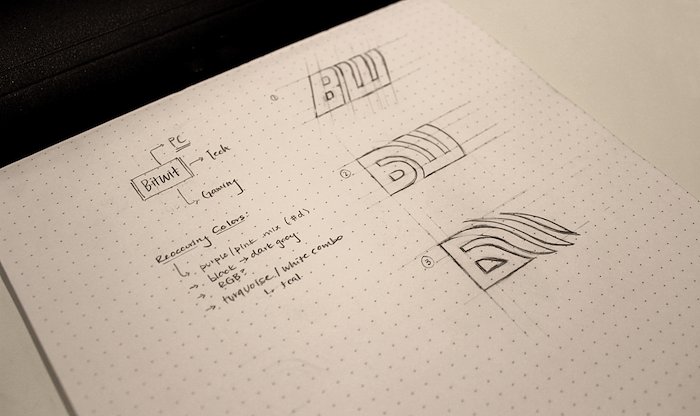 PC
Bitwit
Tech
Gaming
Reoccuring Colors:
purple/pink mix (#d)
black → dark grey
RGB?
turquoise/white combo
teal
①
BW
②
BW
③